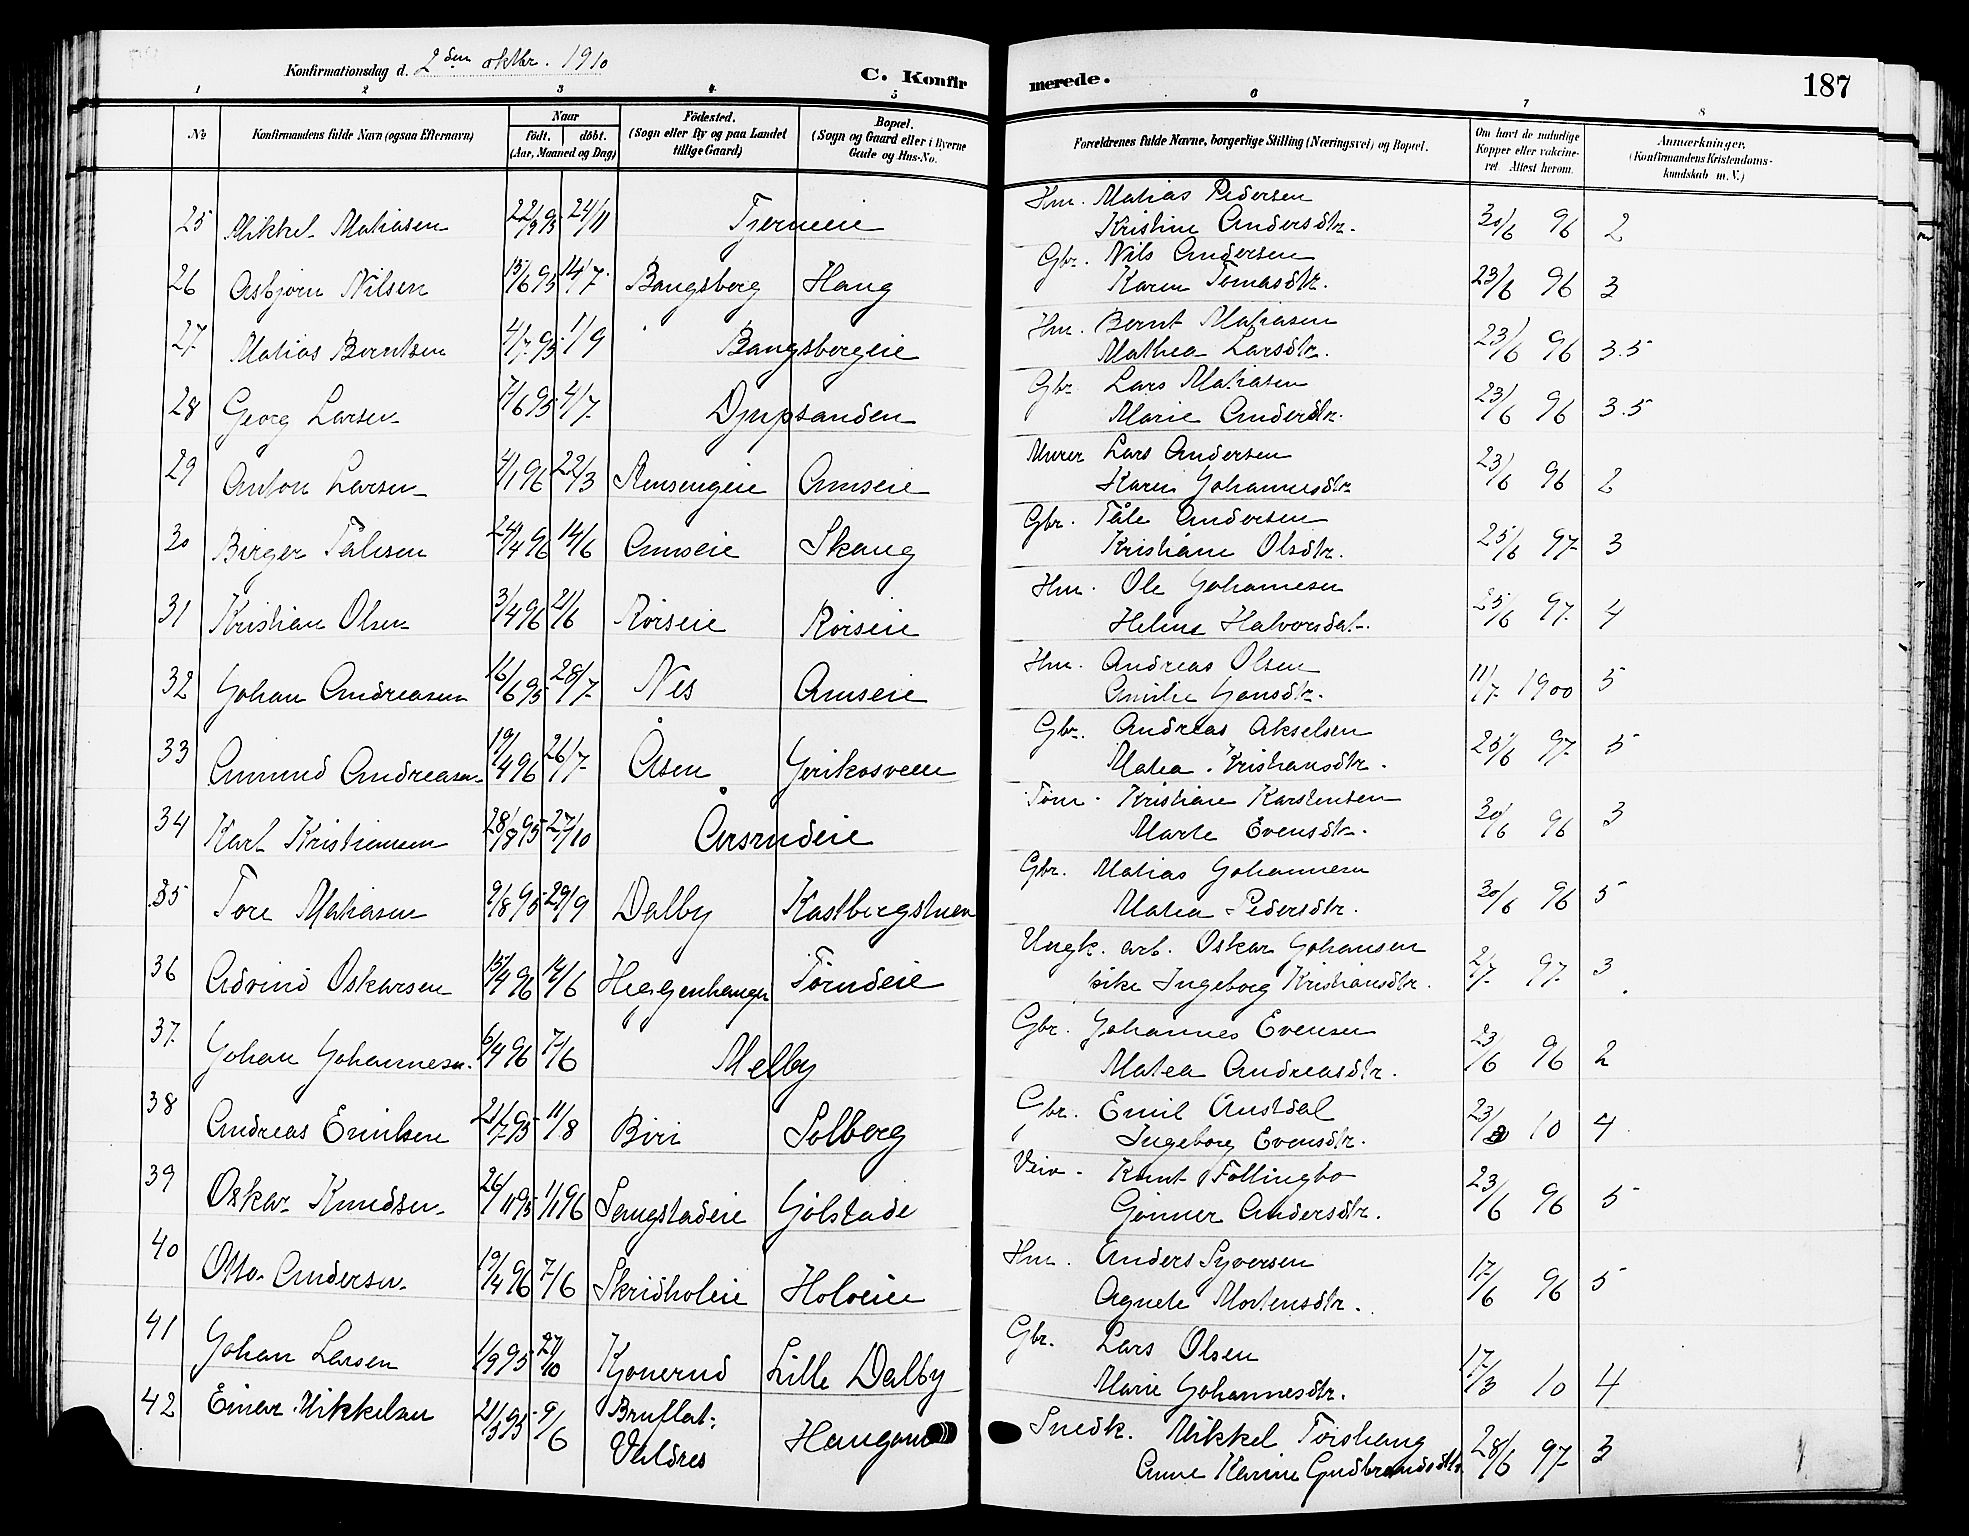 Konfirmationsdag d. 2den oktbr. 1910
C. Konfir merede.
187
1 2 3 4 5 6 7 8
No
Konfirmandens fulde Navn (ogsaa Efternavn)
Naar
født. døbt.
(Aar, Maaned og Dag)
Fødested.
(Sogn eller By og paa Landet
tillige Gaard)
Bopæl.
(Sogn og Gaard eller i Byerne
Gade og Hus-No.
Forældrenes fulde Navne, borgerlige Stilling (Næringsvei) og Bopæl.
Om havt de naturlige
Kopper eller vakcine-
ret. Attest herom.
Anmærkninger,
(Konfirmandens Kristendoms-
kundskab m. V.)
Hm. Matias Pedersen
25 Mikkel Matiasen 22/9 95 24/11 Tjerneie Kristine Andersdtr. 30/6 96 2
Gbr. Nils Andersen
26 Asbjørn Nilsen 15/6 95 14/7 Bangsberg Haug Karen Tomasdtr. 23/6 96 3
Hm. Bernt Matiasen
27 Matias Berntsen 4/7 95 1/9 Bangsbergeie Mathea Larsdtr. 23/6 96 3.5
Gbr. Lars Matiasen
28 Georg Larsen 7/6 95 4/7 Djupsanden Marie Andersdtr. 23/6 96 3.5
Murer Lars Andersen
29 Anton Larsen 4/1 96 22/3 Stensengeie Amseie Karen Johannesdtr. 23/6 96 2
Gbr. Tåle Andersen
30 Birger Tålesen 24/4 96 14/6 Amseie Skaug Kristiane Olsdtr. 25/6 97 3
Hm. Ole Johannesen
31 Kristian Olsen 3/4 96 21/6 Rørseie Rørseie Helene Halvorsdat. 25/6 97 4
Hm. Andreas Olsen
32 Johan Andreasen 16/6 95 28/7 Nes Amseie Amilie Hansdtr. 11/7 1900 5
Gbr. Andreas Akselsen
33 Amund Andreasen 19/4 96 26/7 Åsen Jerikosveen Matea Kristiansdtr. 25/6 97 5
Tøm. Kristian Karstensen
34 Karl Kristiansen 28/8 95 27/10 Årsrudeie Marte Evensdtr. 30/6 96 3
Gbr. Matias Johannesen
35 Tore Matiasen 9/8 95 29/9 Dalby Kastbergstuen Matea Pedersdtr. 30/6 96 5
Ungk. arb. Oskar Johansen
36 Edvind Oskarsen 15/4 96 14/6 Heggenhaugen Tørudeie pike Ingeborg Kristiansdtr. 2/7 97 3
Gbr. Johannes Evensen
37 Johan Johannesen. 6/4 96 7/6 Melby Matea Andreasdtr. 23/6 96 2
Gbr. Emil Austdal
38 Andreas Emilsen 21/7 95 11/8 Biri Solberg Ingeborg Evensdtr. 23/9 10 4
Veiv. Knut Follingbo
39 Oskar Knudsen 26/11 95 1/1 96 Saugstadeie Gjølstade Gønner Andersdtr. 23/6 96 5
Hm. Anders Syversen
40 Otto Andersen 19/4 96 7/6 Skridholeie Holoeie Agnete Mortensdtr. 17/6 96 5
Gbr. Lars Olsen
41 Johan Larsen 1/9 95 27/10 Kjonerud Lille Dalby Marie Johannesdtr. 17/3 10 4
42 Einar Mikkelsen 21/3 95 9/6 Bruflat: Valdres Haugom Snedk. Mikkel Torshaug
Anne Karine Gudbrandsdtr. 28/6 97 3